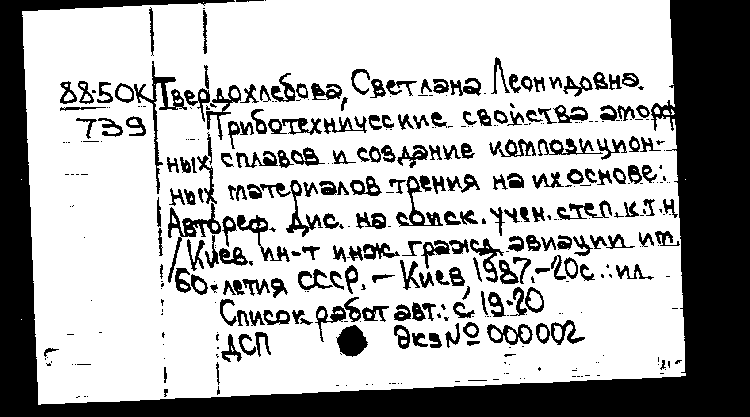 88.50К Твердохлебова, Светлана Леонидовна.
Т39 Триботехнические свойства аморф
ных сплавов и создание композицион-
ных материалов трения на их основе:
Автореф. дис. на соиск. учен. степ. к.т.н
/Киев. ин-т инж. гражд. авиации им.
60-летия СССР. – Киев, 1987.-20с.:ил.
Список работ авт.: с. 19-20
ДСП Экз № 000002